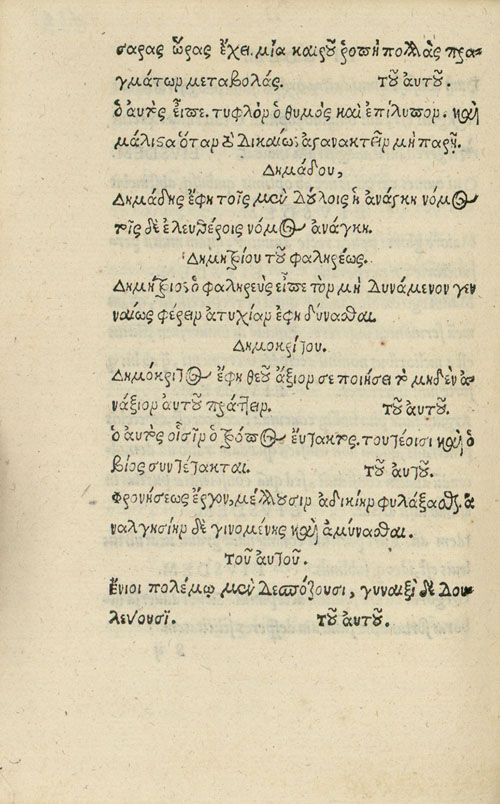 σαρας ὥρας ἔχει. μία καιροῦ ῥοπὴ πολλὰς πρα-
γμάτων μεταβολάς. τοῦ αὐτοῦ.
ὁ αὐτὸς εἶπε. τυφλὸν ὁ θυμὸς καὶ ἐπίλυπον. καὶ
μάλιστα ὅταν οὐ δικαίως ἀγανακτεῖν μὴ παρῇ.
Δημάδου,
Δημάδης ἔφη τοῖς μὲν δούλοις ἡ ἀνάγκη νόμος
τοῖς δὲ ἐλευθέροις νόμος ἀνάγκη.
Δημητρίου τοῦ φαληρέως.
Δημήτριος ὁ φαληρεὺς εἶπε τὸν μὴ δυνάμενον γεν
ναίως φέρειν ἀτυχίαν ἔφη δύνασθαι
Δημοκρίτου.
Δημόκριτος ἔφη θεοῦ ἄξιον σε ποιήσει τὸ μηδὲν ἀ-
νάξιον αὐτοῦ πράττειν. τοῦ αὐτοῦ.
ὁ αὐτὸς οἷσιν ὁ τρόπος εὔτακτος. τουτέοισι καὶ ὁ
βίος συντέτακται. τοῦ αὐτοῦ.
Φρονήσεως ἔργον, μέλλουσιν ἀδικίην φυλάξασθαι. ἀ
ναλγησίην δὲ γινομένης καὶ ἀμύνασθαι.
τοῦ αὐτοῦ.
Ἔνιοι πολέμῳ μὲν δεσπόζουσι, γυναιξὶ δὲ δου-
λεύουσι. τοῦ αὐτοῦ.